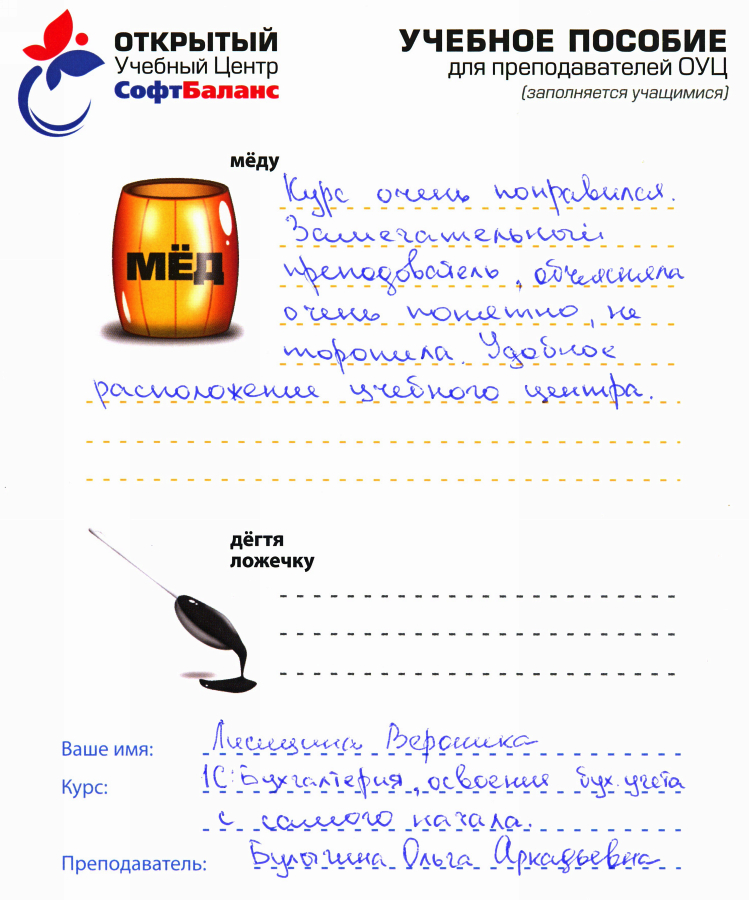 ОТКРЫТЫЙ
Учебный Центр
СофтБаланс
УЧЕБНОЕ ПОСОБИЕ
для преподавателей ОУЦ
(заполняется учащимися)
мёду
МЁД
Курс очень понравился.
Замечательный
преподователь, объясняла
очень понятно, не
торопила. Удобное
расположение учебного центра.
дёгтя
ложечку
Ваше имя: Лисицина Вероника
Курс: 1С:Бухгалтерия, освоение бух. учета
с самого начала.
Преподаватель: Булыгина Ольга Аркадьевна